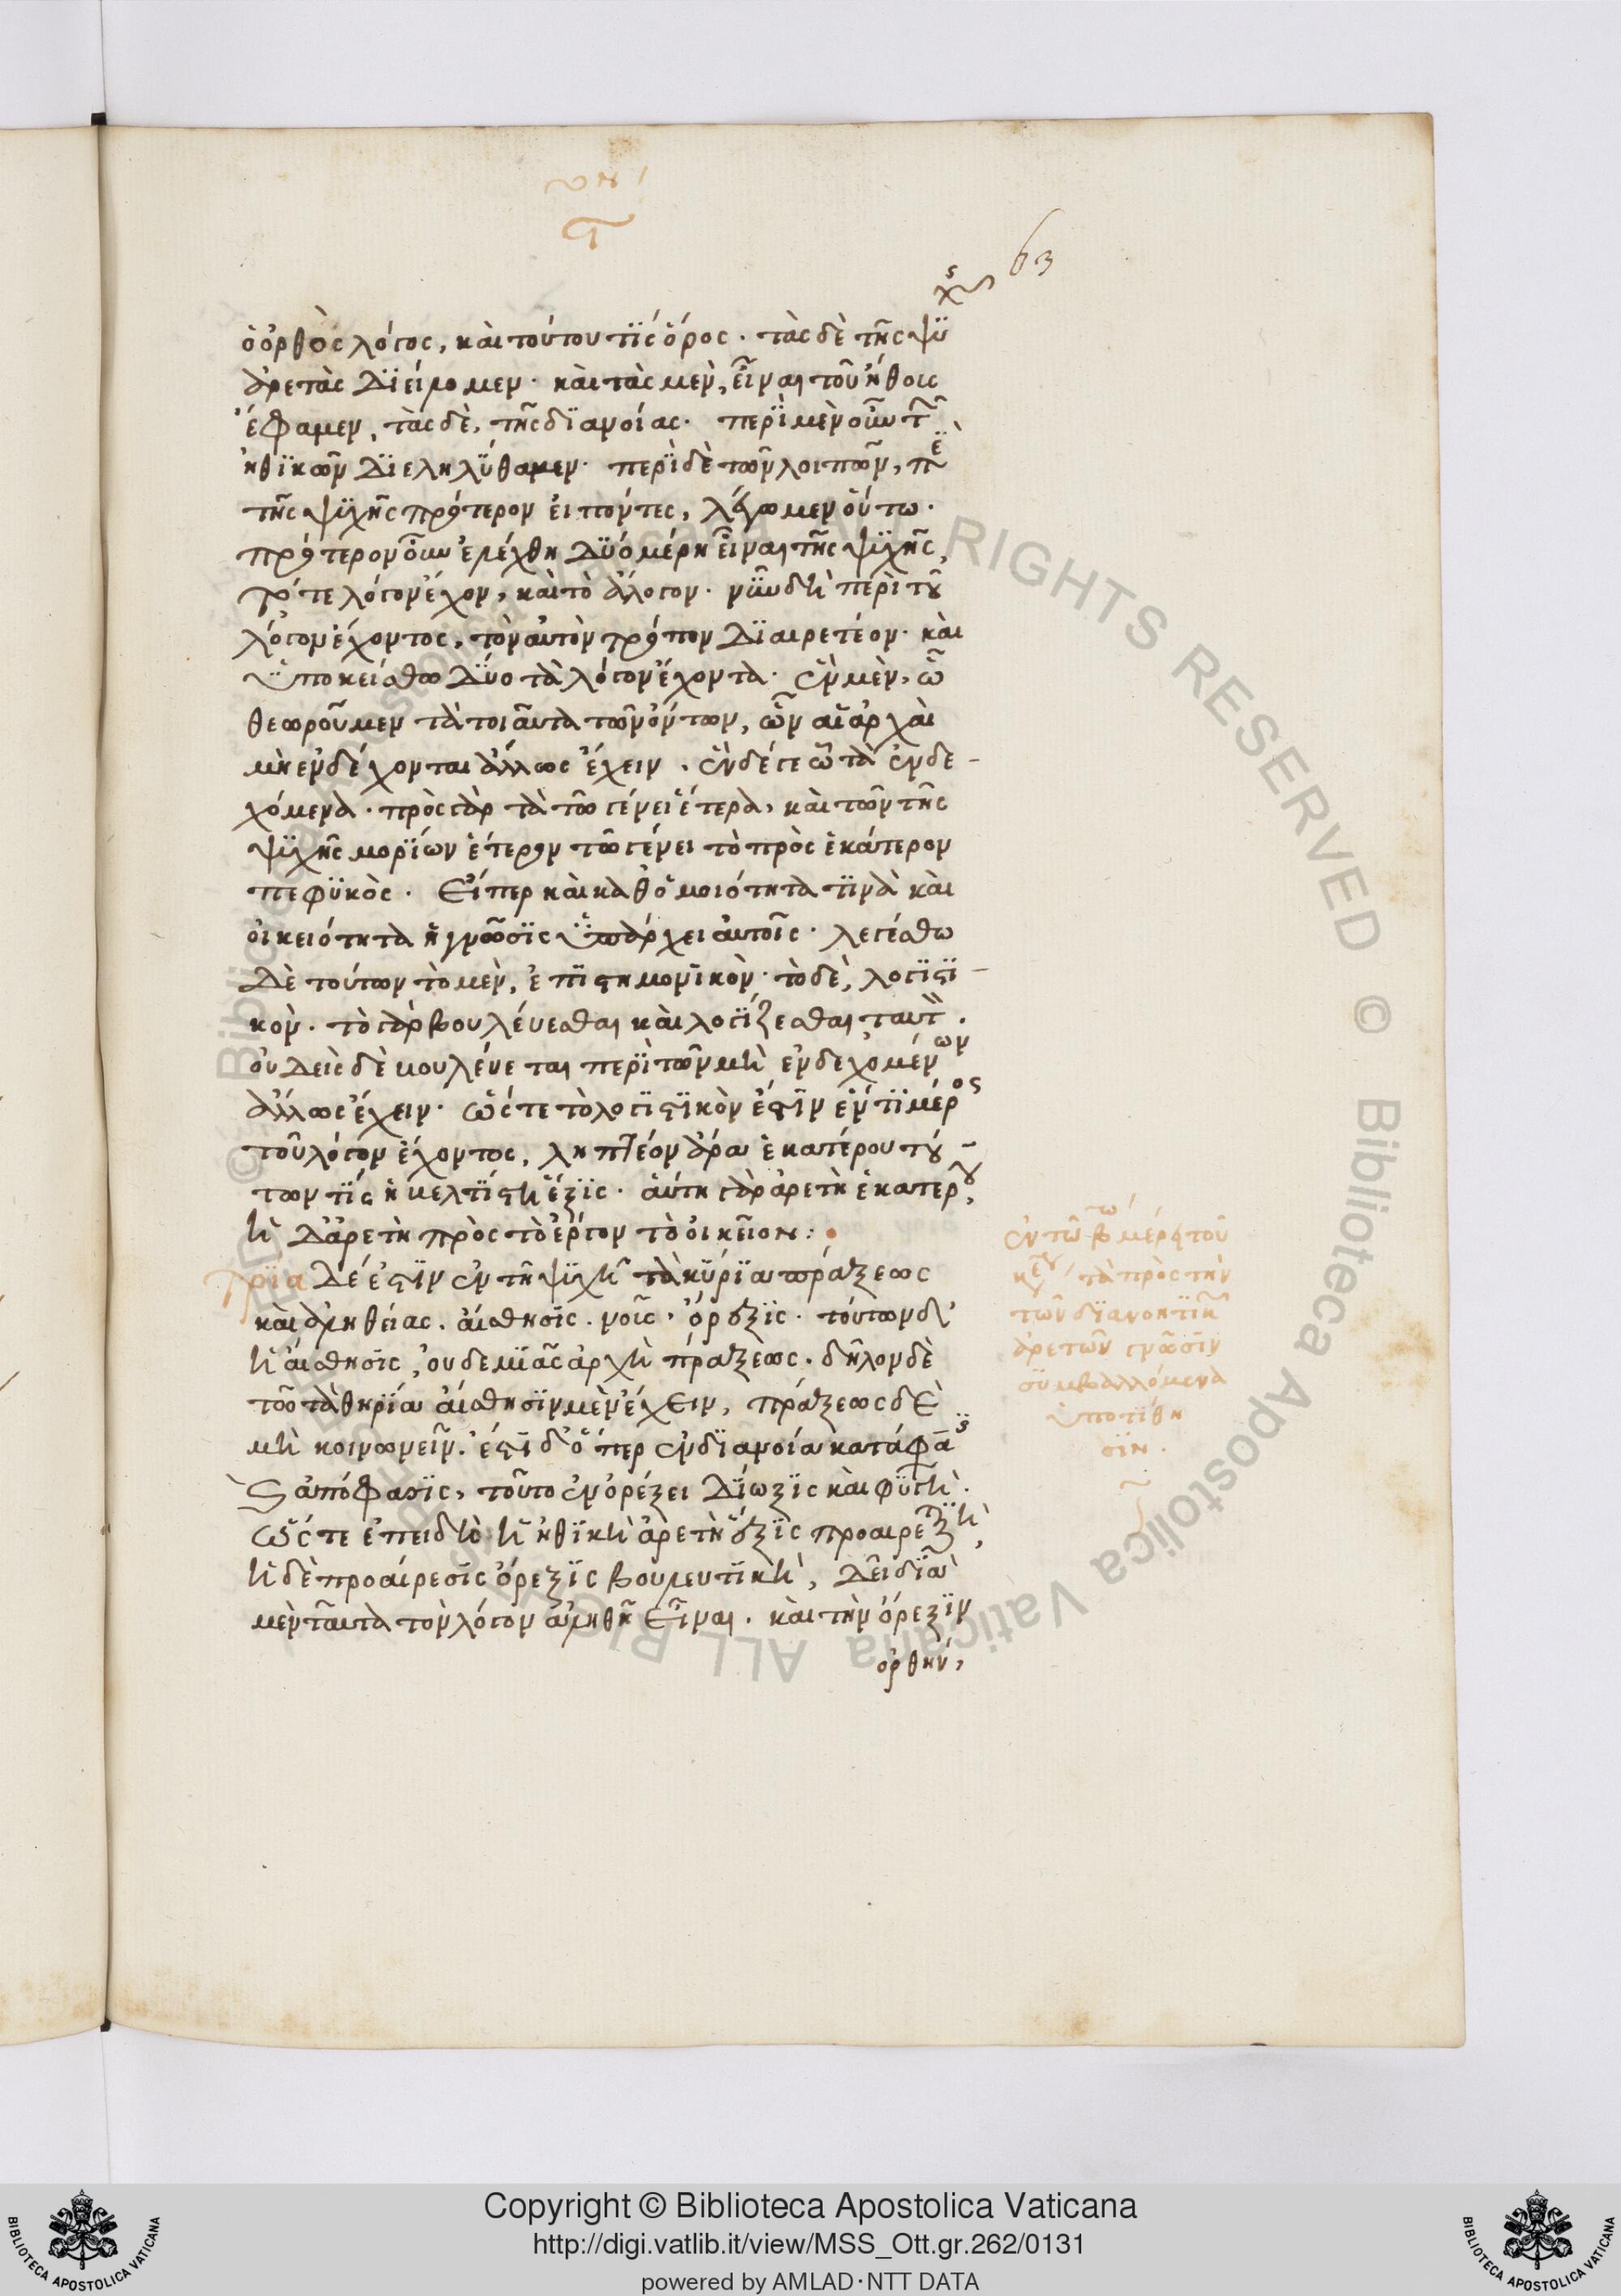 63
ὁ ὀρθὸς λόγος, καὶ τούτου τίς ὅρος. τὰς δὲ τῆς ψυχῆς
ἀρετὰς διείλομεν. καὶ τὰς μὲν, εἶναι τοῦ ἤθους
ἔφαμεν, τὰς δὲ, τῆς διανοίας. περὶ μὲν οὖν τῶν
ἠθικῶν διεληλύθαμεν. περὶ δὲ τῶν λοιπῶν, περὶ
τῆς ψυχῆς πρότερον εἰπόντες, λέγωμεν οὕτω.
πρότερον οὖν ἐλέχθη δύο μέρη εἶναι τῆς ψυχῆς,
τό τε λόγον ἔχον, καὶ τὸ ἄλογον. νῦν δὴ περὶ τοῦ
λόγον ἔχοντος, τὸν αὐτὸν τρόπον διαιρετέον. καὶ
ὑποκείσθω δύο τὰ λόγον ἔχοντα. ἓν μὲν, ᾧ
θεωροῦμεν τὰ τοιαῦτα τῶν ὄντων, ὧν αἱ ἀρχαὶ
μὴ ἐνδέχονται ἄλλως ἔχειν. ἓν δέ γε ᾧ τὰ ἐνδε-
χόμενα. πρὸς γὰρ τὰ τῷ γένει ἕτερα, καὶ τῶν τῆς
ψυχῆς μορίων ἕτερον τῷ γένει τὸ πρὸς ἑκάτερον
πεφυκὸς. Εἴπερ καὶ καθ ὁμοιότητα τινὰ καὶ
οἰκειότητα ἡ γνῶσις ὑπάρχει αὐτοῖς. λεγέσθω
δὲ τούτων τὸ μὲν, ἐπιστημονικὸν. τὸ δὲ, λογιστι-
κὸν. τὸ γὰρ βουλεύεσθαι καὶ λογίζεσθαι ταυτὸν.
οὐδεὶς δὲ βουλεύεται περὶ τῶν μὴ ἐνδεχομένων
ἄλλως ἔχειν. ὥστε τὸ λογιστικὸν ἐστὶν ἕν τι μέρος
τοῦ λόγον ἔχοντος, ληπτέον ἄρα ἑκατέρου τού-
των τίς ἡ βελτίστη ἕξις. αὕτη γὰρ ἀρετὴ ἑκατέρου,
ἡ δ ἀρετὴ πρὸς τὸ ἔργον τὸ οἰκεῖον:
Τρία δέ ἐστιν ἐν τῇ ψυχῇ τὰ κύρια πράξεως
καὶ ἀληθείας. αἴσθησις. νοῦς. ὄρεξις. τούτων δ'
ἡ αἴσθησις, οὐδεμιᾶς ἀρχὴ πράξεως. δῆλον δὲ
τῷ τὰ θηρία αἴσθησιν μὲν ἔχειν, πράξεως δὲ
μὴ κοινωνεῖν. ἔστι δ' ὅπερ ἐν διανοίᾳ κατάφασις
καὶ ἀπόφασις, τοῦτο ἐν ὀρέξει δίωξις καὶ φυγὴ.
ὥστε ἐπειδὴ ἡ ἠθικὴ ἀρετὴ ἕξις προαιρετικὴ,
ἡ δὲ προαίρεσις ὄρεξις βουλευτικὴ, δεῖ διὰ
μὲν ταῦτα τὸν λόγον ἀληθῆ εἶναι. καὶ τὴν ὄρεξιν
ὀρθὴν,
ἐν τῷ β μέρει τοῦ
τὰ πρὸς τὴν
τῶν διανοητικῶν
ἀρετῶν γνῶσιν
συμβαλλόμενα
ὑποτίθη
σιν.
© Biblioteca Apostolica Vaticana ALL RIGHTS RESERVED
Copyright © Biblioteca Apostolica Vaticana
http://digi.vatlib.it/view/MSS_Ott.gr.262/0131
powered by AMLAD·NTT DATA
BIBLIOTECA APOSTOLICA VATICANA
BIBLIOTECA APOSTOLICA VATICANA